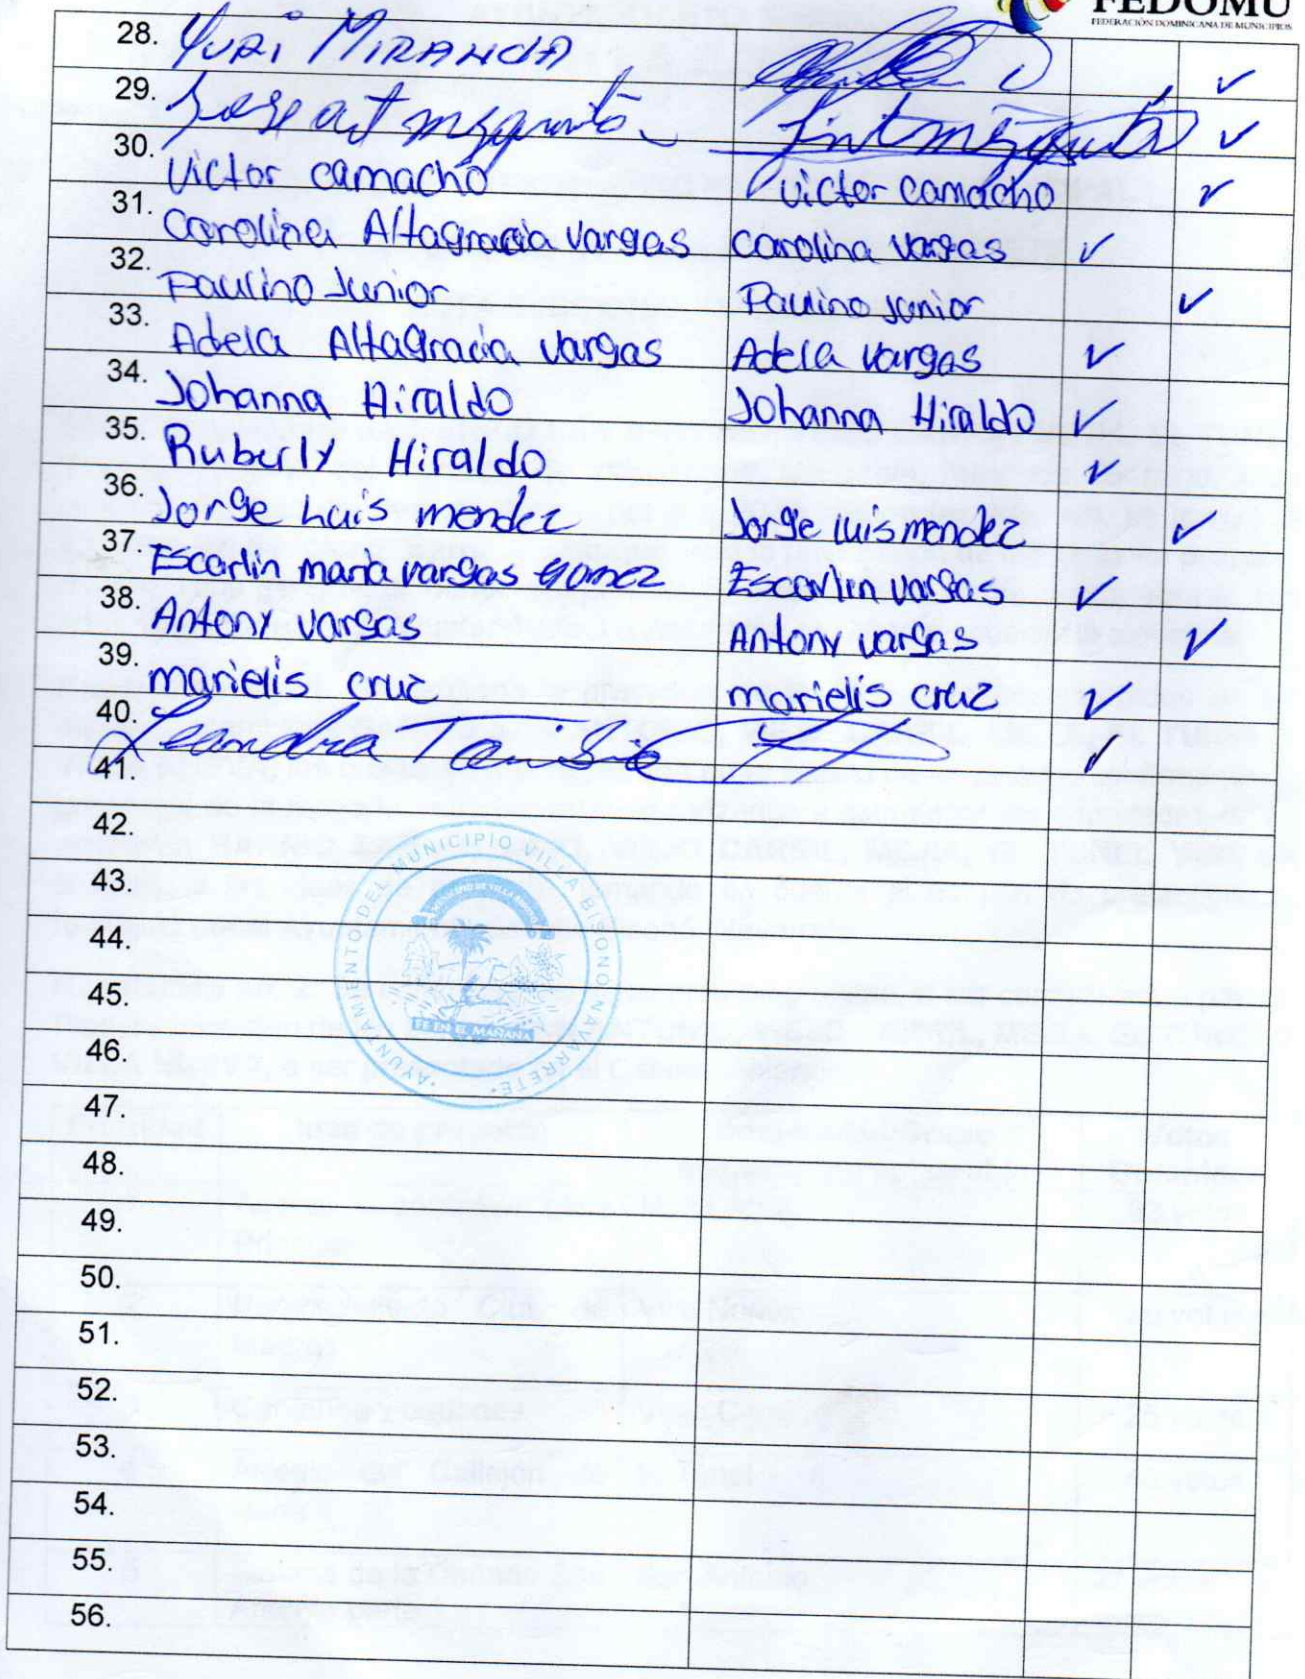 FEDOMU
FEDERACIÓN DOMINICANA DE MUNICIPIOS
28. Yuri Miranda ✓
29. Jose ✓
30. Victor camacho victor camacho ✓
31. Carolina Altagracia vargas carolina vargas ✓
32. Paulino Junior Paulino Junior ✓
33. Adela Altagracia vargas Adela vargas ✓
34. Johanna Hiraldo Johanna Hiraldo ✓
35. Ruberly Hiraldo ✓
36. Jorge Luis mendez Jorge luis mendez ✓
37. Escarlin maria vargas Gomez Escarlin vargas ✓
38. Antony vargas Antony vargas ✓
39. marielis cruz marielis cruz ✓
40. Leandra ✓
41.
42.
43.
44.
45.
46.
47.
48.
49.
50.
51.
52.
53.
54.
55.
56.
AYUNTAMIENTO DEL MUNICIPIO VILLA BISONO NAVARRETE
FE EN EL MAÑANA